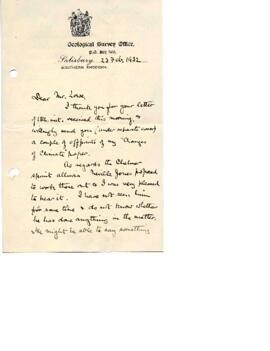 Geological Survey Office,
P.O. Box
Salisbury. 23 Feb. 1932
SOUTHERN RHODESIA.
Dear Mr. Lowe,
I thank you for your letter
of 18th inst. received this morning, &
willingly send you (under separate cover)
a couple of offprints of my "Changes
of Climate" paper.
As regards the
Neville Jones proposed
to work there out to I was very pleased
to hear it. I have not seen him
for some time & do not know whether
he has done anything in the matter.
He might be able to say something